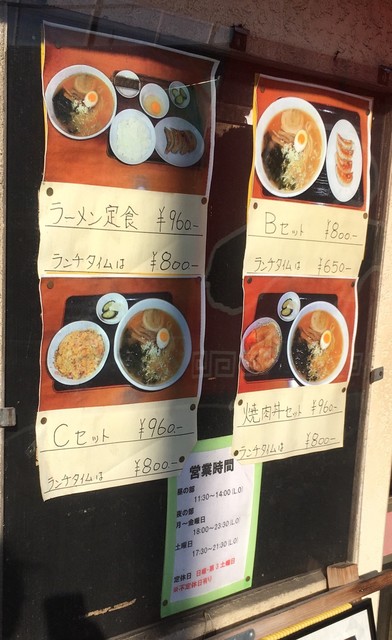 ラーメン定食 ¥960-
ランチタイムは ¥800-
Bセット ¥800-
ランチタイムは ¥650-
Cセット ¥960-
ランチタイムは ¥800-
焼肉丼セット ¥960-
ランチタイムは ¥800-
営業時間
昼の部
11:30~14:00 (L.O)
夜の部
月~金曜日
18:00~23:30 (L.O)
土曜日
17:30~21:30 (L.O)
定休日 日曜・第3土曜日
※不定休日有り